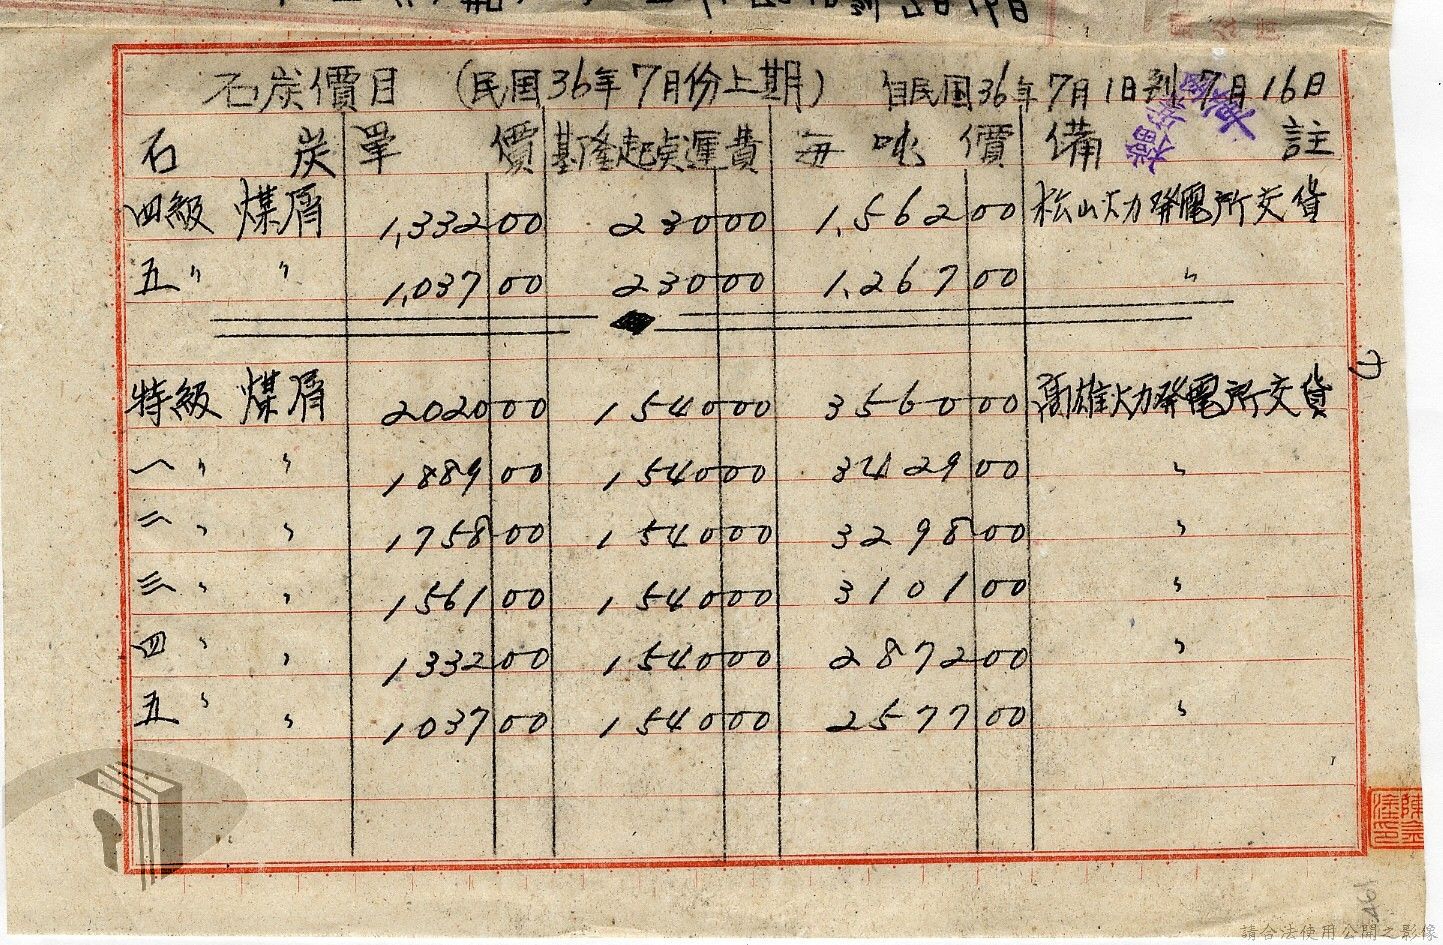 石炭價目 (民国36年7月份上期) 自民国36年7月1日到7月16日
石炭 單價 基隆起点運費 每噸價 備註
四級 煤屑 1,332 00 230 00 1,562 00 松山火力發電所交貨
五〃 〃 1,037 00 230 00 1,267 00 〃
特級 煤屑 2020 00 1540 00 3560 00 高雄火力發電所交貨
一〃 〃 1889 00 1540 00 3429 00 〃
二〃 〃 1758 00 1540 00 3298 00 〃
三〃 〃 1561 00 1540 00 3101 00 〃
四〃 〃 1332 00 1540 00 2872 00 〃
五〃 〃 1037 00 1540 00 2577 00 〃
461
請合法使用公開之影像